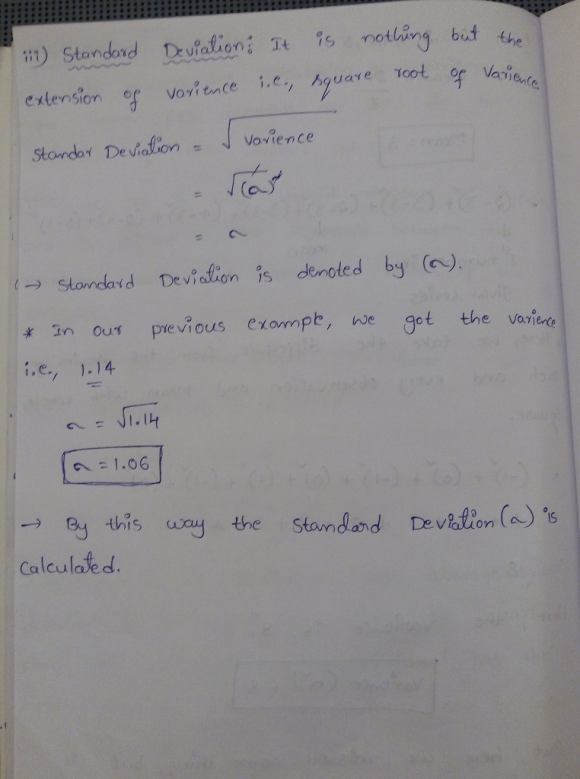 iii) Standard Deviation: It is nothing but the
extension of varience i.e., square root of Varience
Standar Deviation = √varience
= √(σ)²
= σ
→ Standard Deviation is denoted by (σ).
* In our previous example, we got the varience
i.e., 1.14
σ = √1.14
σ = 1.06
→ By this way the Standard Deviation (σ) is
Calculated.